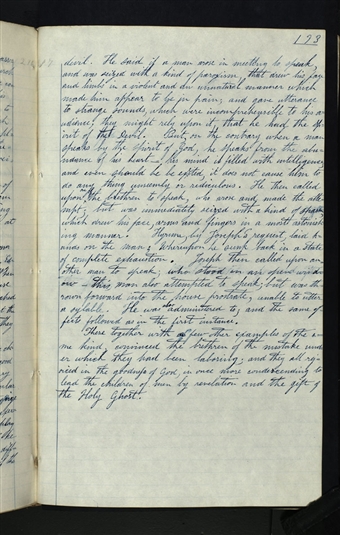 123
devil. He said if a man arose in meeting to speak,
and was seized with a kind of paroxism, that drew his face
and limbs in a violent and unnatural manner which
made him appear to be in pain; and gave utterance
to strange sounds, which were incomprehensible to his au
dience, they might rely upon it, that he had the sp
irit of the devil. But, on the contrary when a man
speaks by the spirit of God, he speaks from the abu
ndance of his heart — his mind is filled with intelligence,
and even should he be excited, it does not cause him to
do any thing unseemly or ridiculous. He then called
upon one of the brethren to speak, who arose and made the atte
mpt, but was immediately seized with a kind of spasm,
which drew his face, arms and fingers in a most astonish
ing manner. Hyrum, by Joseph's request, laid h
ands on the man; whereupon he sunk back in a state
of complete exhaustion. Joseph then called upon an
other man to speak; who stood in an open wind
ow — this man also attempted to speak; but was th
rown forward into the house prostrate, unable to utter
a syllable. He was administered to; and the same ef
fects followed as in the first instance.
These together with a few other examples of the sa
me kind; convinced the brethren of the mistake und
er which they had been laboring; and they all rej
oiced in the goodness of God, in once more condescending to
lead the children of men by revelation and the gift of
the Holy Ghost.